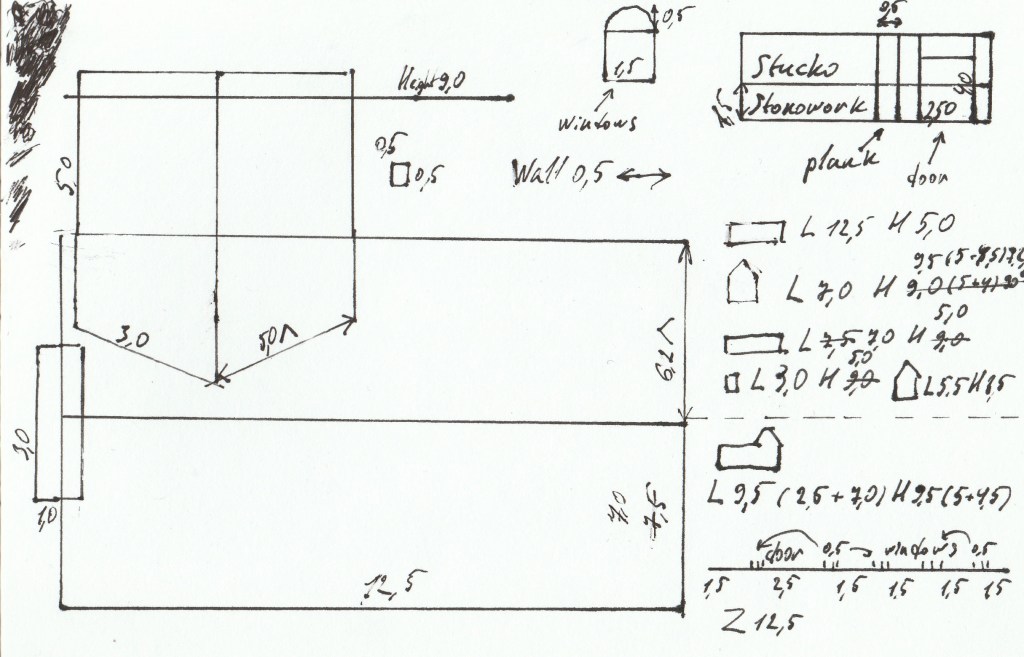 0,5
0,5
1,5
windows
Height 9,0
0,5
0,5
Wall 0,5
Stucko
Stonowork
4,0
2,50
plank
door
5,0
3,0
5,0
6,2
3,0
1,0
7,0
7,5
12,5
L 12,5 H 5,0
L 7,0 H 9,0 (5+4)
5,0
L 7,5 7,0 H 9,0
5,0
L 3,0 H 9,0
L 5,5 H
L 9,5 (2,5 + 7,0) H 9,5 (5+4,5)
door 0,5 windows 0,5
1,5 2,5 1,5 1,5 1,5 1,5
Z 12,5